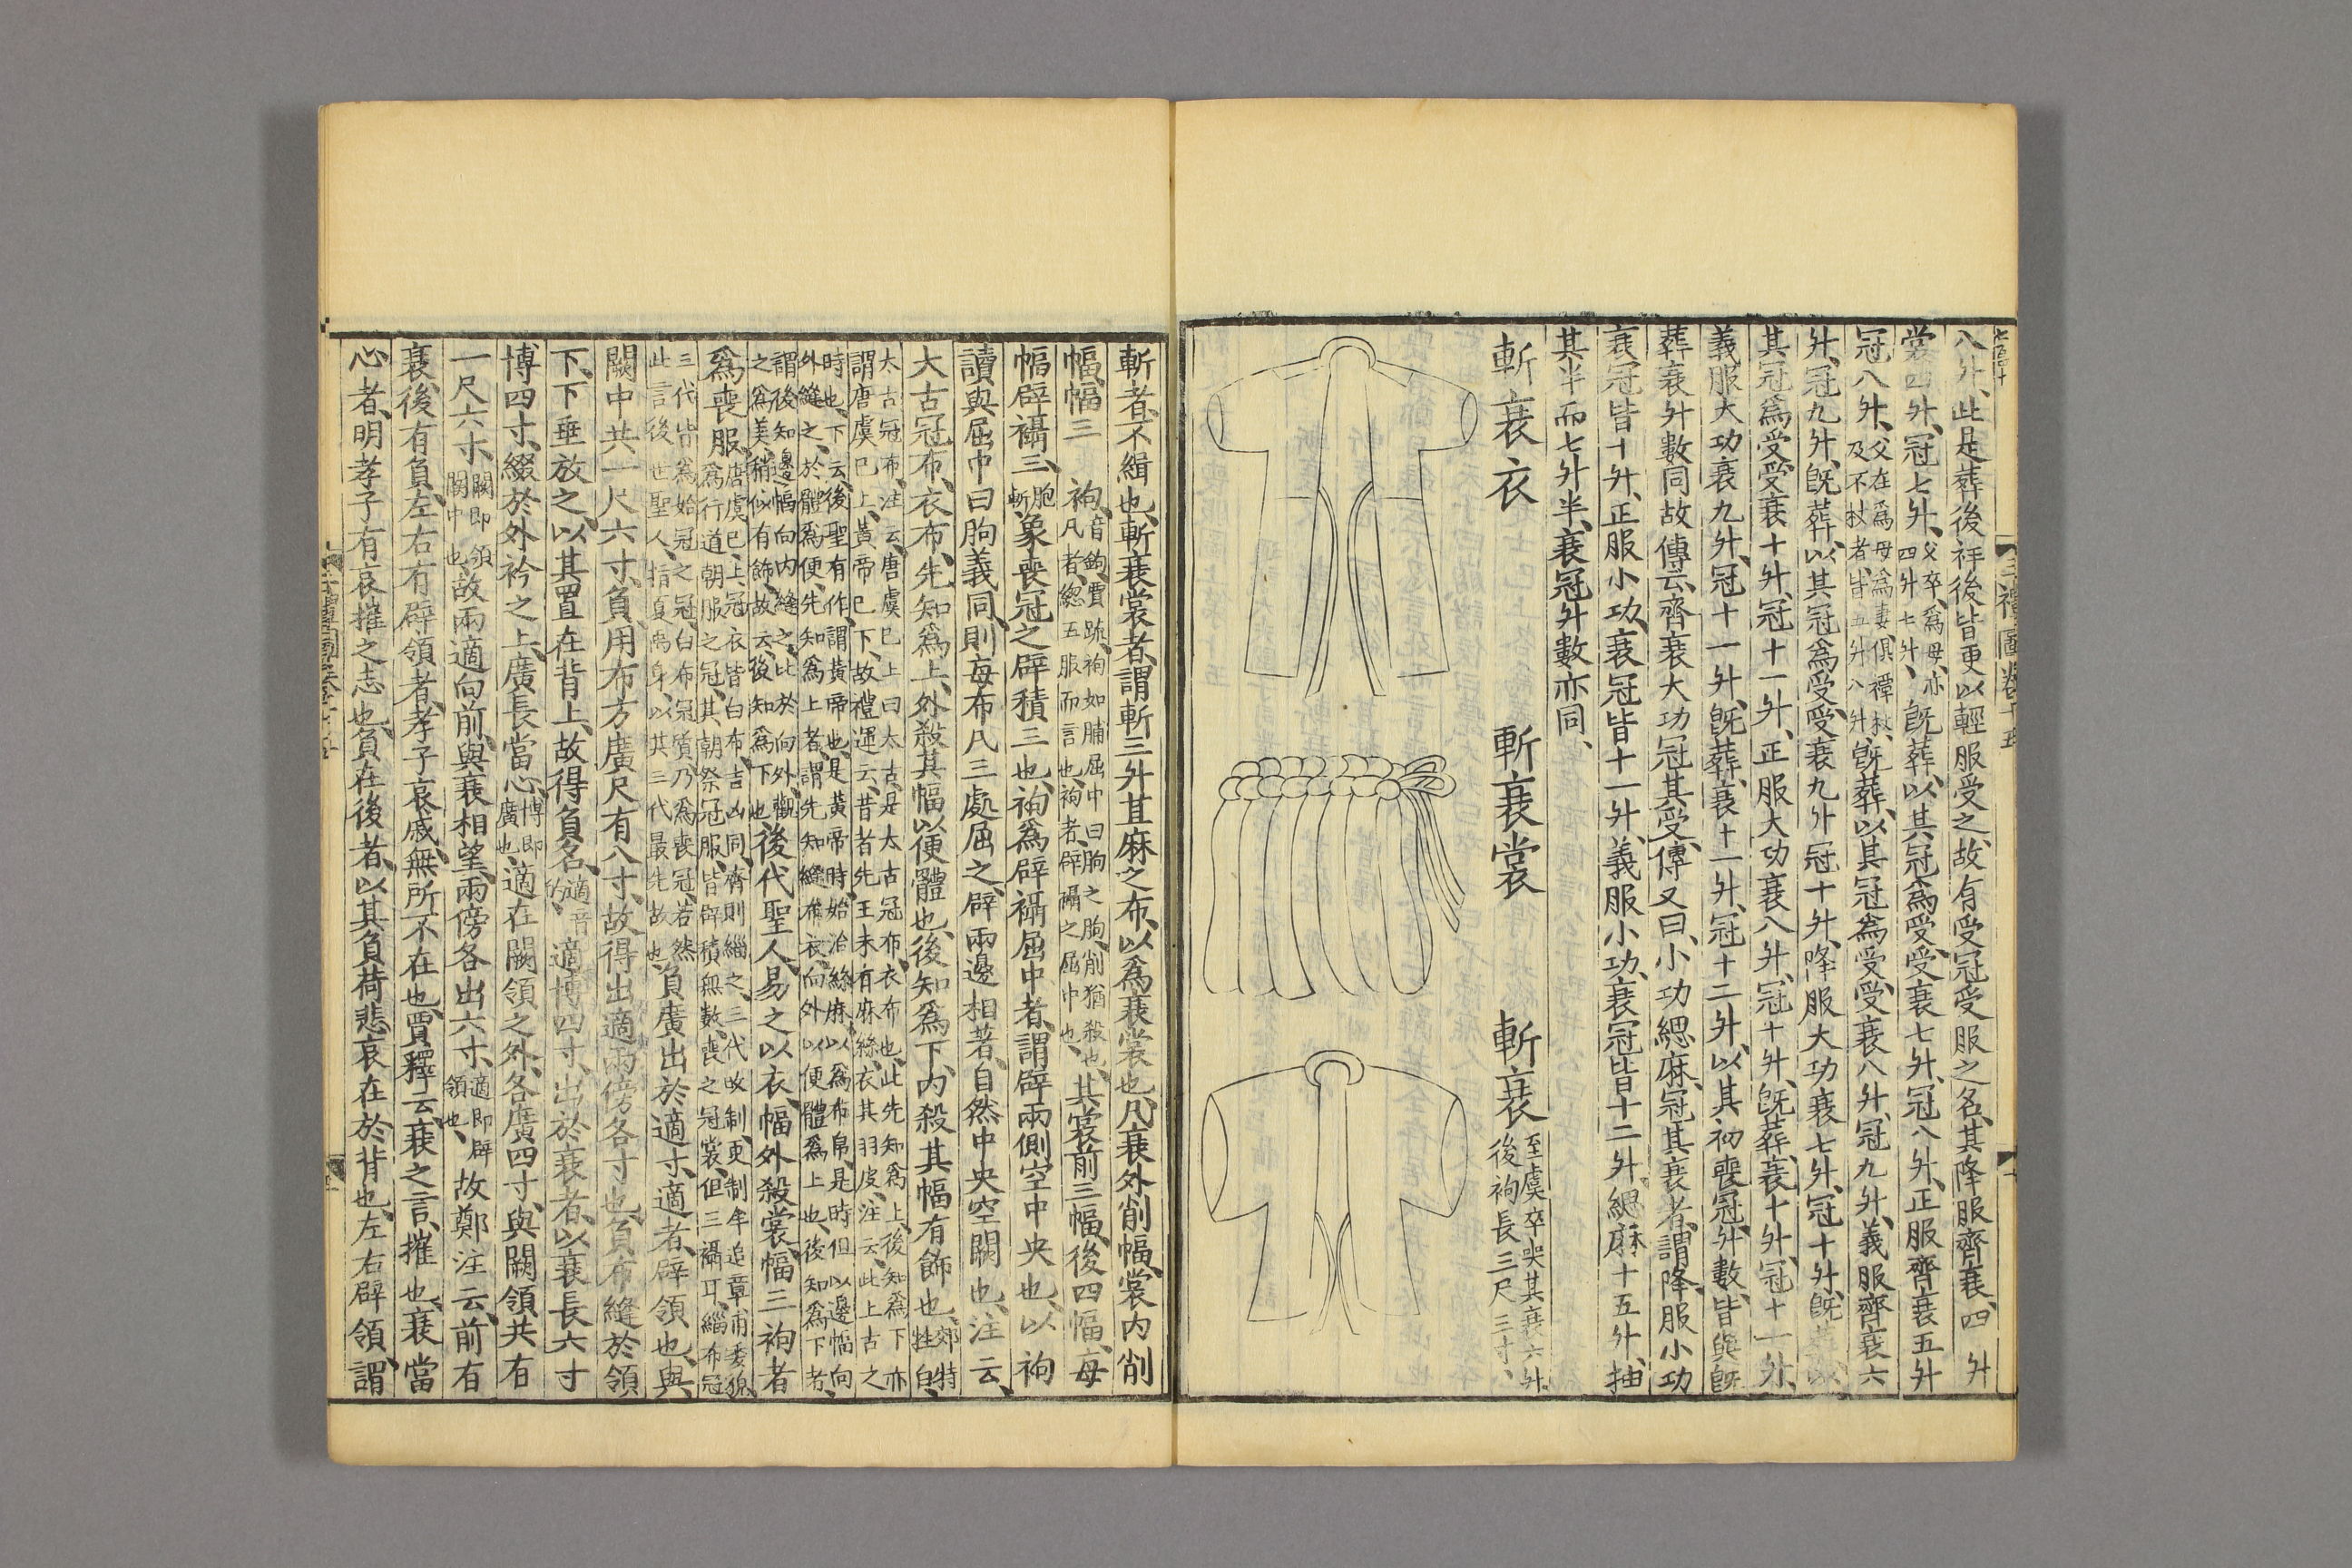 三禮圖卷十五
八升、此是葬後祥後皆更以輕服受之、故有受冠受服之名、其降服齊衰、四升
裳四升、冠七升、父卒、爲母、亦四升七升、既葬、以其冠爲受、受衰七升、冠八升、正服齊衰五升
冠八升、父在爲母爲妻俱禫杖、及不杖者、皆五升八升、既葬、以其冠爲受、受衰八升、冠九升、義服齊衰六
升、冠九升、既葬、以其冠爲受、受衰九升冠十升、降服大功衰七升、冠十升、既葬以
其冠爲受受衰十升、冠十一升、正服大功衰八升、冠十升、既葬、衰十升、冠十一升、
義服大功衰九升、冠十一升、既葬、衰十一升、冠十二升、以其初喪冠升數、皆與既
葬衰升數同故傳云、齊衰大功冠其受、傳又曰、小功緦麻、冠其衰者、謂降服小功
衰冠皆十升、正服小功、衰冠皆十一升、義服小功、衰冠皆十二升、緦麻十五升、抽
其半而七升半、衰冠升數亦同、
斬衰衣
斬衰裳
斬衰 至虞卒哭其衰六升後袧長三尺三寸、
斬者、不緝也、斬衰裳者、謂斬三升苴麻之布、以爲衰裳也、凡衰外削幅、裳内削
幅、幅三袧、音鉤、賈疏、袧如脯屈中曰朐之朐、削猶殺也、凡者、緫五服而言也、袧者、辟襵之屈中也、其裳前三幅、後四幅、每
幅辟襵三、象喪冠之辟積三也、袧爲辟襵屈中者、謂辟兩側空中央也、以袧
讀與屈中曰朐義同、則每布凡三處屈之、辟兩邊相著、自然中央空闕也、注云、
大古冠布、衣布、先知爲上、外殺其幅、以便體也、後知爲下、内殺其幅有飾也、郊特牲自、
太古冠布、注云、唐虞已上曰太古、是太古冠布、衣布也、此先知爲上、後知爲下亦
謂唐虞已上、黃帝已下、故禮運云、昔者先王未有麻絲、衣其羽皮、注云、此上古之
時也、下云後聖有作、謂黃帝也、是黃帝時、始治絲麻、以爲布帛、是時但以邊幅向
外縫之、於體爲便、先知爲上者、謂先知縫布衣、向外以便體爲上也、後知爲下者、
謂後知邊幅向内縫之、比於向外、觀之爲美、稍似有飾、故云後知爲下也、後代聖人、易之以衣、幅外殺、裳、幅三袧者
爲喪服、唐虞已上、冠衣皆白布、吉凶同、齊則緇之、三代改制、更制牟追章甫委貌、爲行道朝服之冠、其朝祭冠服、皆辟積無數、喪之冠裳、但三襵耳、緇布冠
三代皆爲始冠之冠、白布冠質乃爲喪冠、若然此言後世聖人、指夏禹身、以其三代最先故也、負廣出於適寸、適者、辟領也、與
闕中共一尺六寸、負、用布方廣尺有八寸、故得出適兩傍各寸也、負布縫於領
下、下垂放之、以其置在背上、故得負名、適音的、適博四寸、出於衰者、以衰長六寸
博四寸、綴於外衿之上、廣長當心、博即廣也、適在闕領之外、各廣四寸、與闕領共有
一尺六寸、闕即領闕中也、故兩適向前、與衰相望、兩傍各出六寸、適即辟領也、故鄭注云、前有
衰後有負、左右有辟領者、孝子哀戚無所不在也、賈釋云、衰之言、摧也、衰當
心者、明孝子有哀摧之志也、負在後者、以其負荷悲哀在於背也、左右辟領、謂